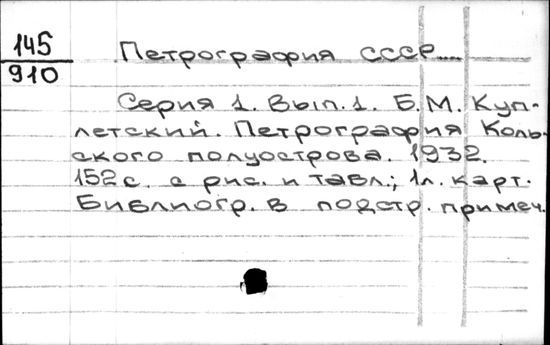 145
910
Петрография СССР....
Серия 1. Вып. 1. Б.М. Куп-
летский. Петрография Коль-
ского полуострова. 1932.
152 с. с рис. и табл.; 1 л. карт.
Библиогр. в подстр. примеч.